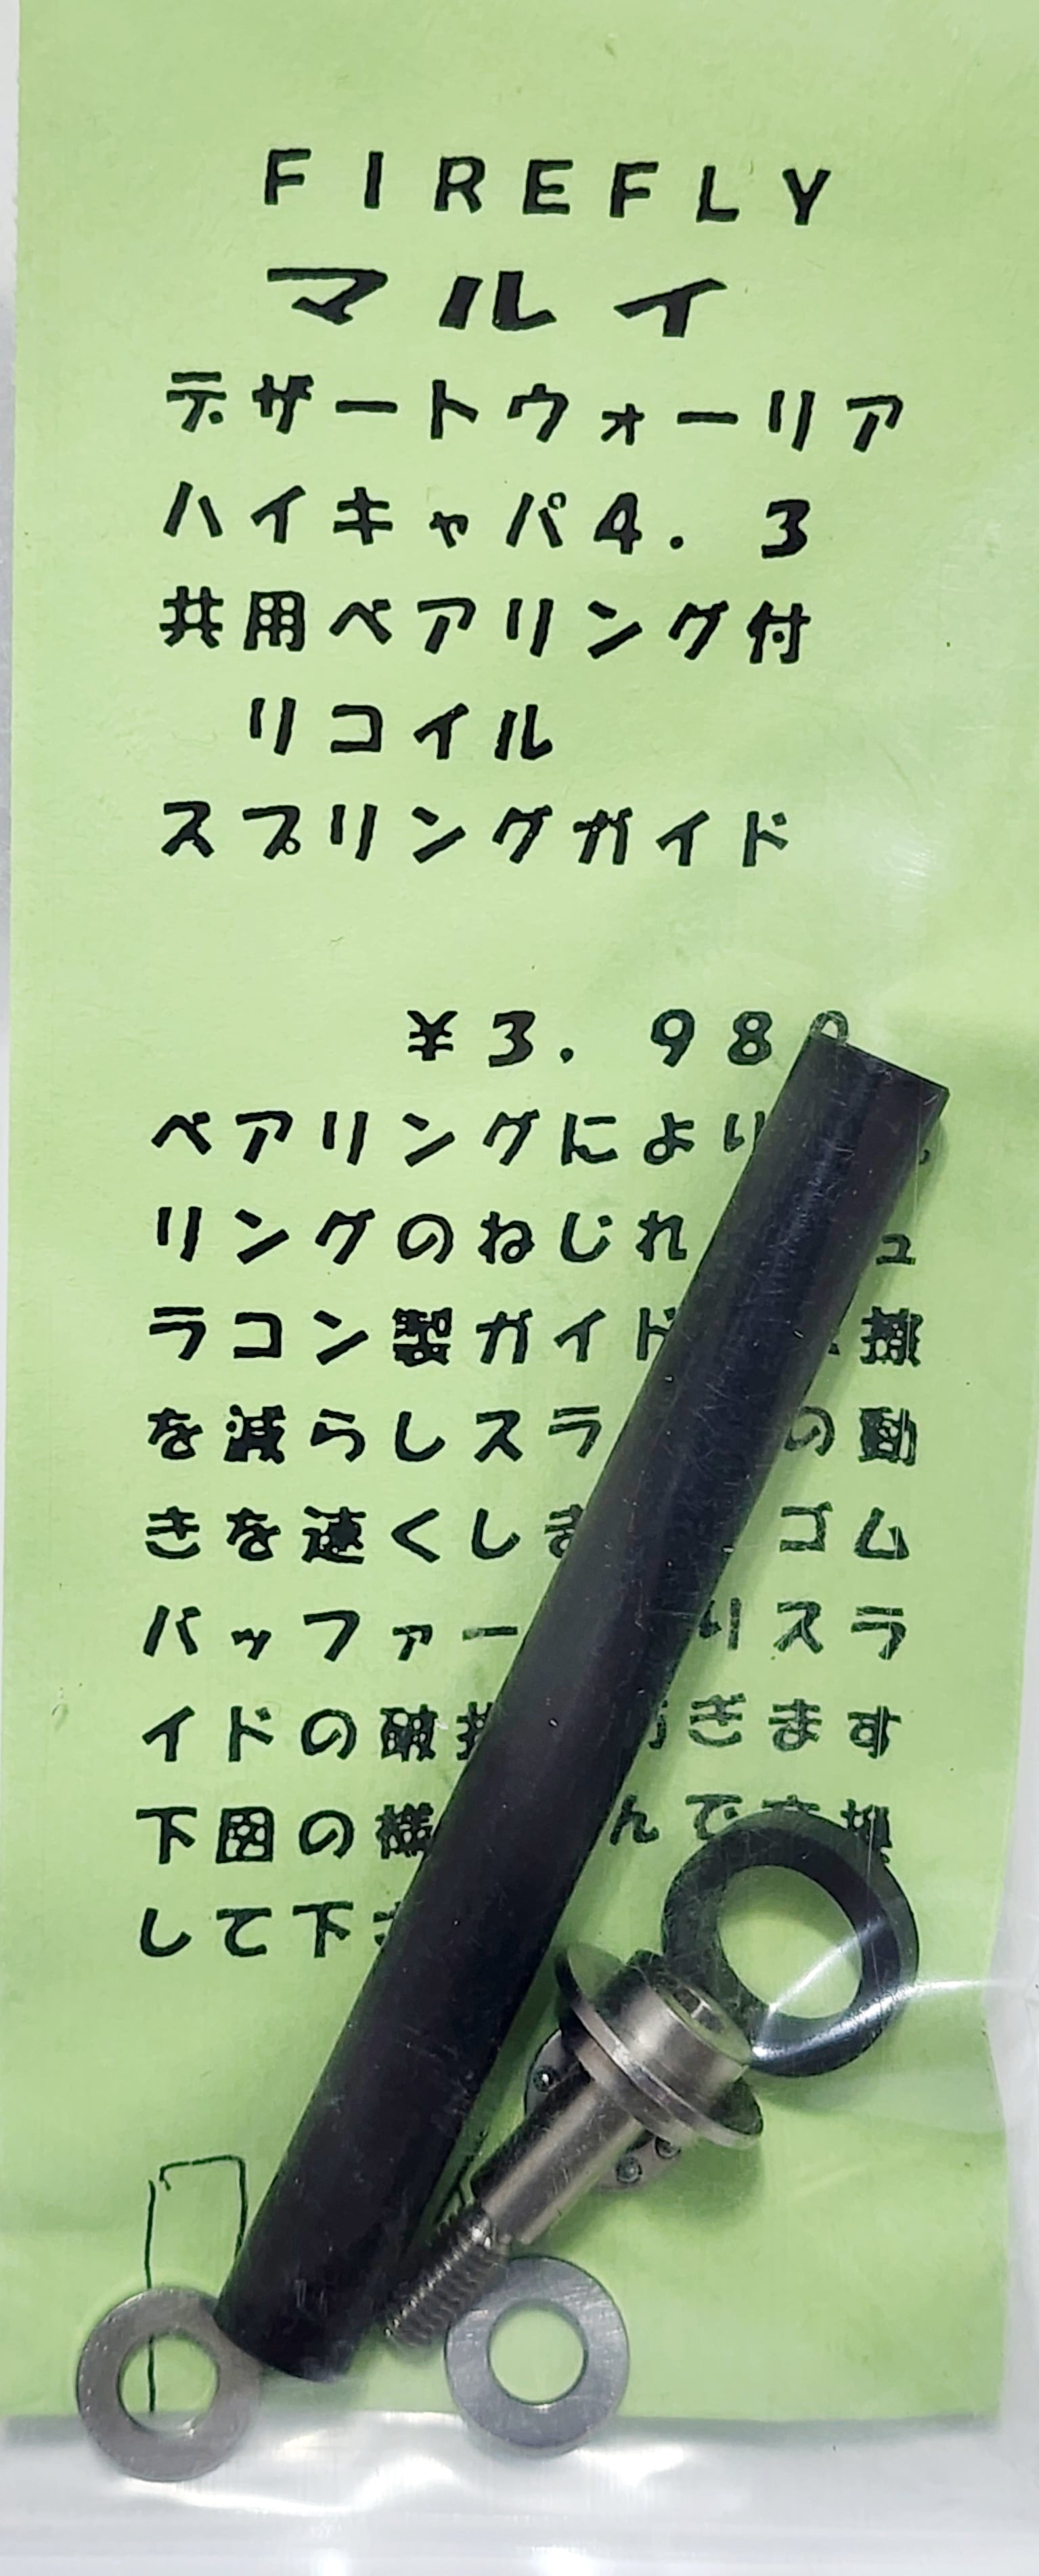 FIREFLY
マルイ
デザートウォーリア
ハイキャパ4.3
共用ベアリング付
リコイル
スプリングガイド
¥3.98
ベアリングにより
リングのねじれ ュ
ラコン製ガイド 排
を減らしスラ の動
きを速くしま ゴム
バッファー りスラ
イドの破損 ぎます
下図の様 んで交換
して下さ